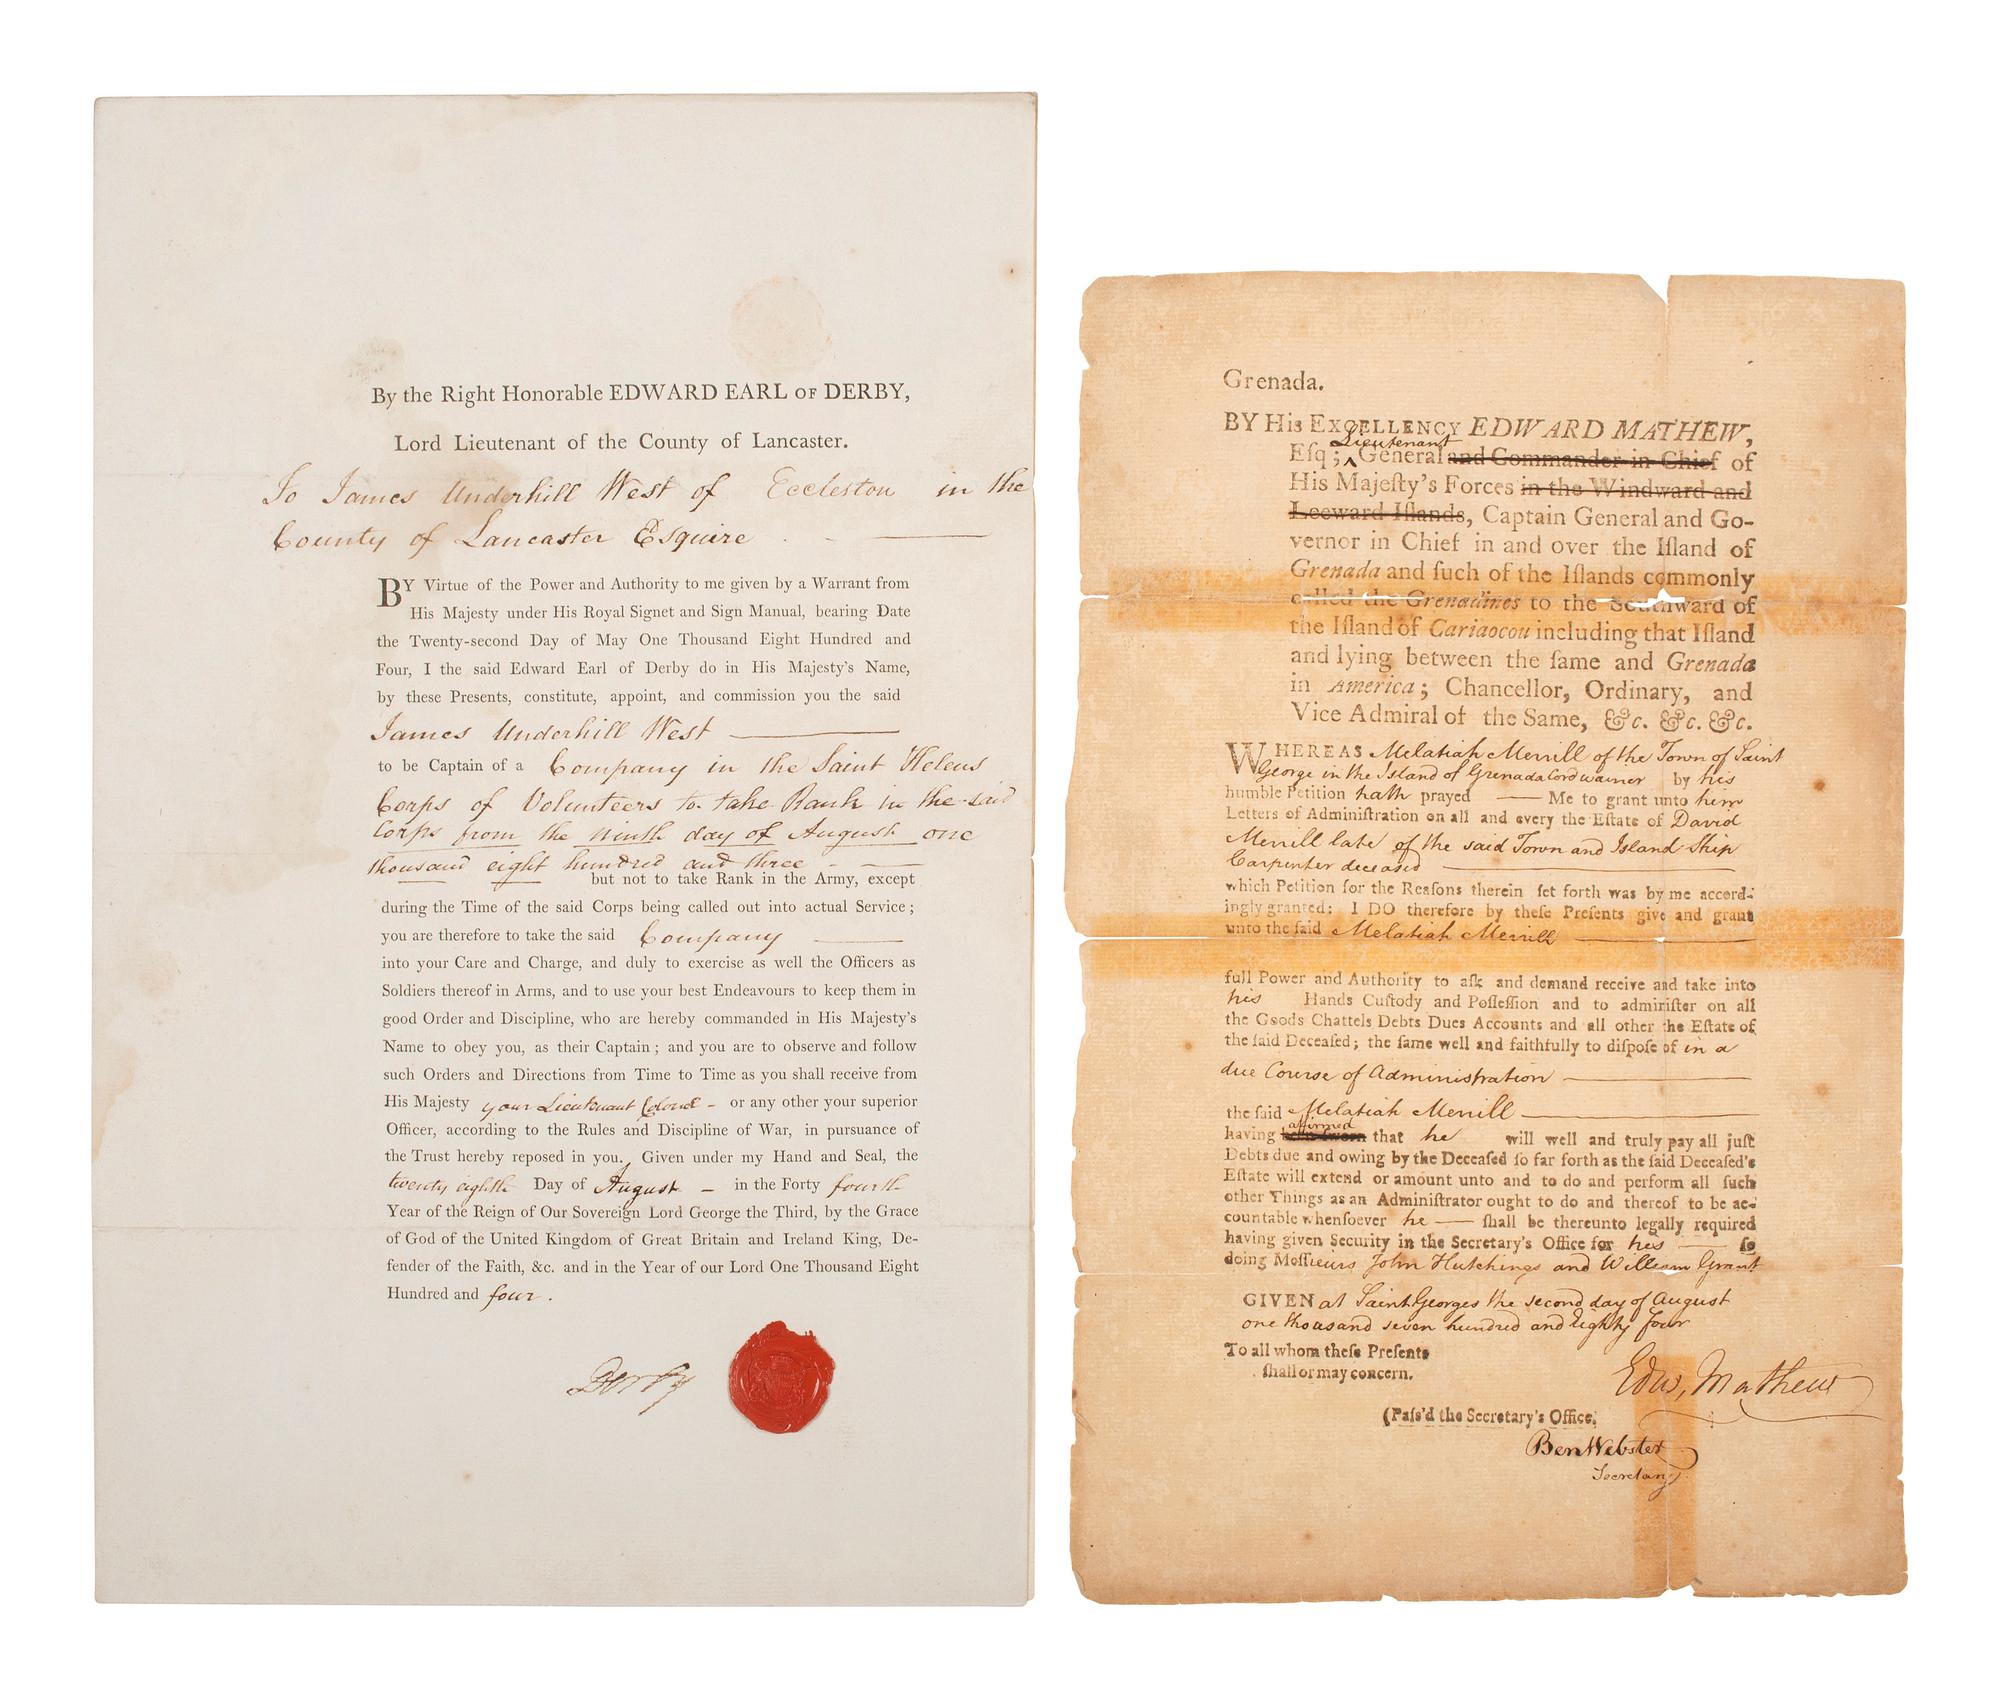 By the Right Honorable EDWARD EARL OF DERBY,
Lord Lieutenant of the County of Lancaster.
To James Underhill West of Eccleston in the
County of Lancaster Esquire
BY Virtue of the Power and Authority to me given by a Warrant from
His Majesty under His Royal Signet and Sign Manual, bearing Date
the Twenty-second Day of May One Thousand Eight Hundred and
Four, I the said Edward Earl of Derby do in His Majesty's Name,
by these Presents, constitute, appoint, and commission you the said
James Underhill West
to be Captain of a Company in the Saint Helens
Corps of Volunteers to take Rank in the said
Corps from the ninth day of August one
thousand eight hundred and three
but not to take Rank in the Army, except
during the Time of the said Corps being called out into actual Service;
you are therefore to take the said Company
into your Care and Charge, and duly to exercise as well the Officers as
Soldiers thereof in Arms, and to use your best Endeavours to keep them in
good Order and Discipline, who are hereby commanded in His Majesty's
Name to obey you, as their Captain; and you are to observe and follow
such Orders and Directions from Time to Time as you shall receive from
His Majesty your Lieutenant Colonel - or any other your superior
Officer, according to the Rules and Discipline of War, in pursuance of
the Trust hereby reposed in you. Given under my Hand and Seal, the
twenty eighth Day of August - in the Forty fourth
Year of the Reign of Our Sovereign Lord George the Third, by the Grace
of God of the United Kingdom of Great Britain and Ireland King, De-
fender of the Faith, &c. and in the Year of our Lord One Thousand Eight
Hundred and four.
Derby
Grenada.
BY His EXCELLENCY EDWARD MATHEW,
Lieutenant
Eſq; ^ General and Commander in Chief of
His Majeſty's Forces in the Windward and
Leeward Iſlands, Captain General and Go-
vernor in Chief in and over the Iſland of
Grenada and ſuch of the Iſlands commonly
called the Grenadines to the Southward of
the Iſland of Cariaocou including that Iſland
and lying between the ſame and Grenada
in America; Chancellor, Ordinary, and
Vice Admiral of the Same, &c. &c. &c.
WHEREAS Melatiah Merrill of the Town of Saint
George in the Island of Grenada Cordwainer by his
humble Petition hath prayed — Me to grant unto him
Letters of Adminiſtration on all and every the Eſtate of David
Merrill late of the said Town and Island Ship
Carpenter deceased
which Petition for the Reaſons therein ſet forth was by me accord-
ingly granted: I DO therefore by theſe Preſents give and grant
unto the ſaid Melatiah Merrill
full Power and Authority to aſk and demand receive and take into
his Hands Cuſtody and Poſſeſſion and to adminiſter on all
the Goods Chattels Debts Dues Accounts and all other the Eſtate of
the ſaid Deceaſed; the ſame well and faithfully to diſpoſe of in a
due Course of Administration
the ſaid Melatiah Merrill
affirmed
having been ſworn that he will well and truly pay all juſt
Debts due and owing by the Deceaſed ſo far forth as the ſaid Deceaſed's
Eſtate will extend or amount unto and to do and perform all ſuch
other Things as an Adminiſtrator ought to do and thereof to be ac-
countable whenſoever he — ſhall be thereunto legally required
having given Security in the Secretary's Office for his — ſo
doing Meſſieurs John Hutchings and William Grant
GIVEN at Saint Georges the second day of August
one thousand seven hundred and Eighty four
To all whom theſe Preſents
ſhall or may concern.
Edw, Mathew
(Paſs'd the Secretary's Office.
Ben Webster
Secretary